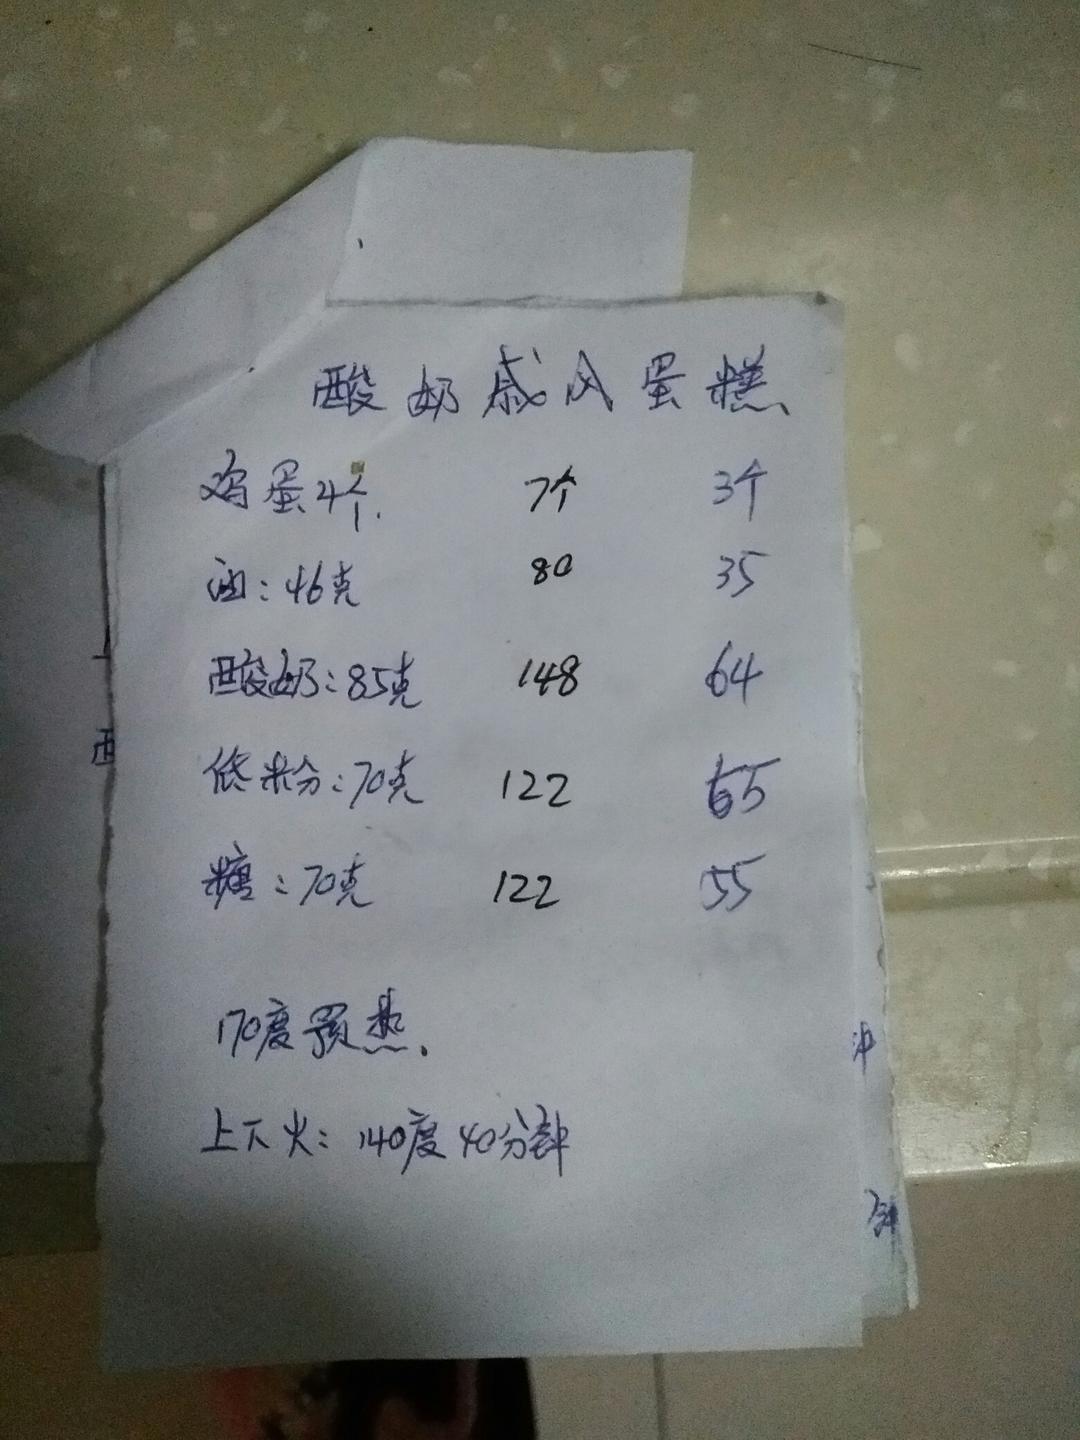 酸奶戚风蛋糕
鸡蛋4个. 7个 3个
油:46克 80 35
酸奶:85克 148 64
低粉:70克 122 55
糖:70克 122 55
170度预热.
上下火:140度40分钟